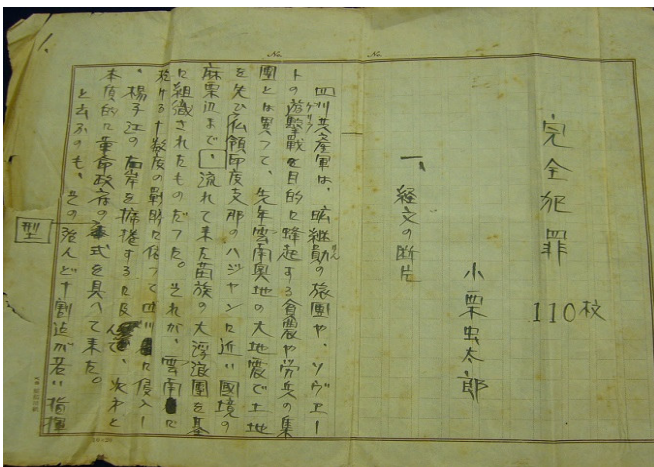 完全犯罪 110枚
小栗虫太郎
一、経文の断片
四川共産軍は、継勛の旅團や、ソヴエー
トの遊撃戦を目的に蜂起する貪農や労兵の集
團とは異つて、先年雲南奥地の大地震で土地
を失ひ仏領印度支那のハジヤンに近い國境の
麻栗辺まで、流れて来た苗族の大浮浪團を基
に組織されたものだつた。それが、雲南に
於ける十数度の戦勝に依つて四川に侵入し
、楊子江の岸を席捲するに及んで、次才と
本質的に革命政府の式を具へて来た。
と云ふのも、その殆んど十割迄が若い指揮
型
No.
No.